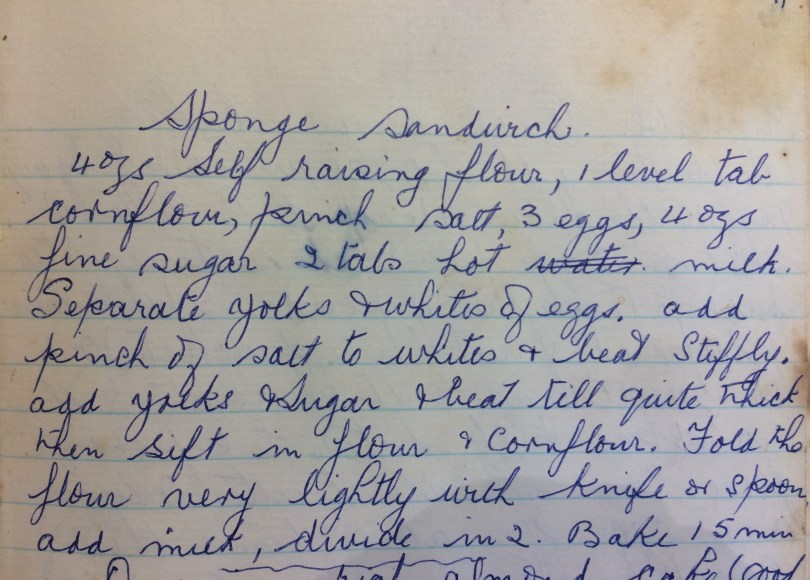 Sponge Sandwich.
4 ozs Self raising flour, 1 level tab
cornflour, pinch salt, 3 eggs, 4 ozs
fine sugar 2 tabs hot water milk.
Separate yolks & whites of eggs. add
pinch of salt to whites & beat Stiffly.
add yolks & Sugar & beat till quite thick
then sift in flour & Cornflour. Fold the
flour very lightly with knife or spoon
add milk, divide in 2. Bake 15 min
almond cake (Good